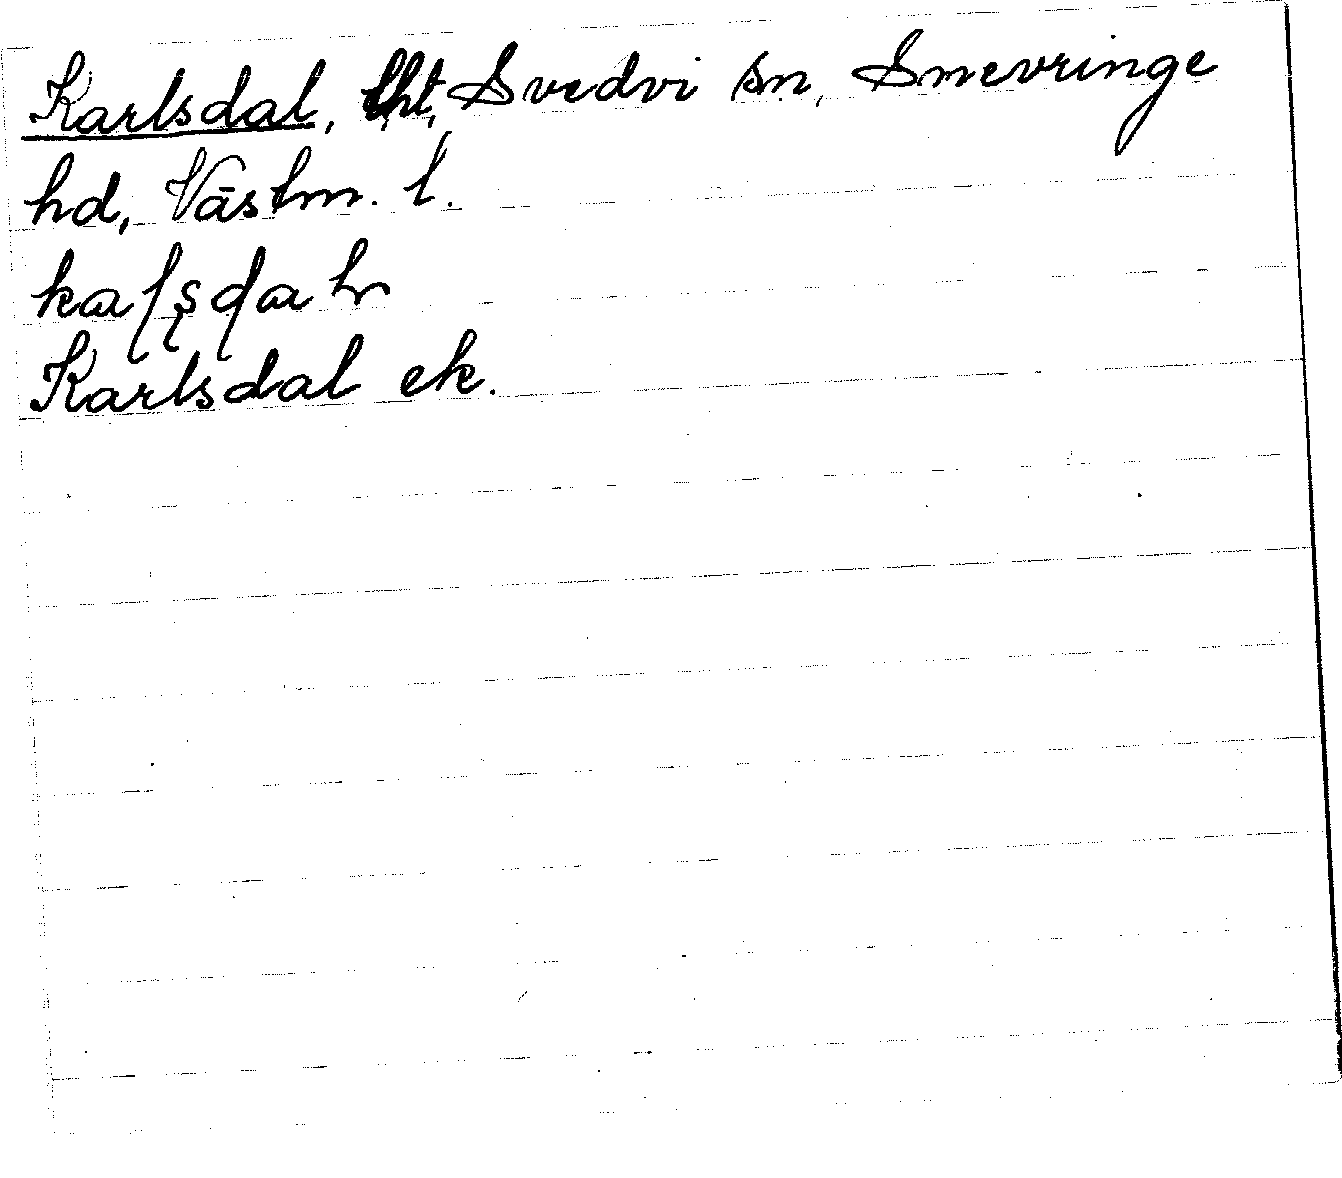 Karlsdal, lht, Svedvi sn, Snevringe
hd, Västm. l.
kaɭʂɖaɭ
Karlsdal ek.